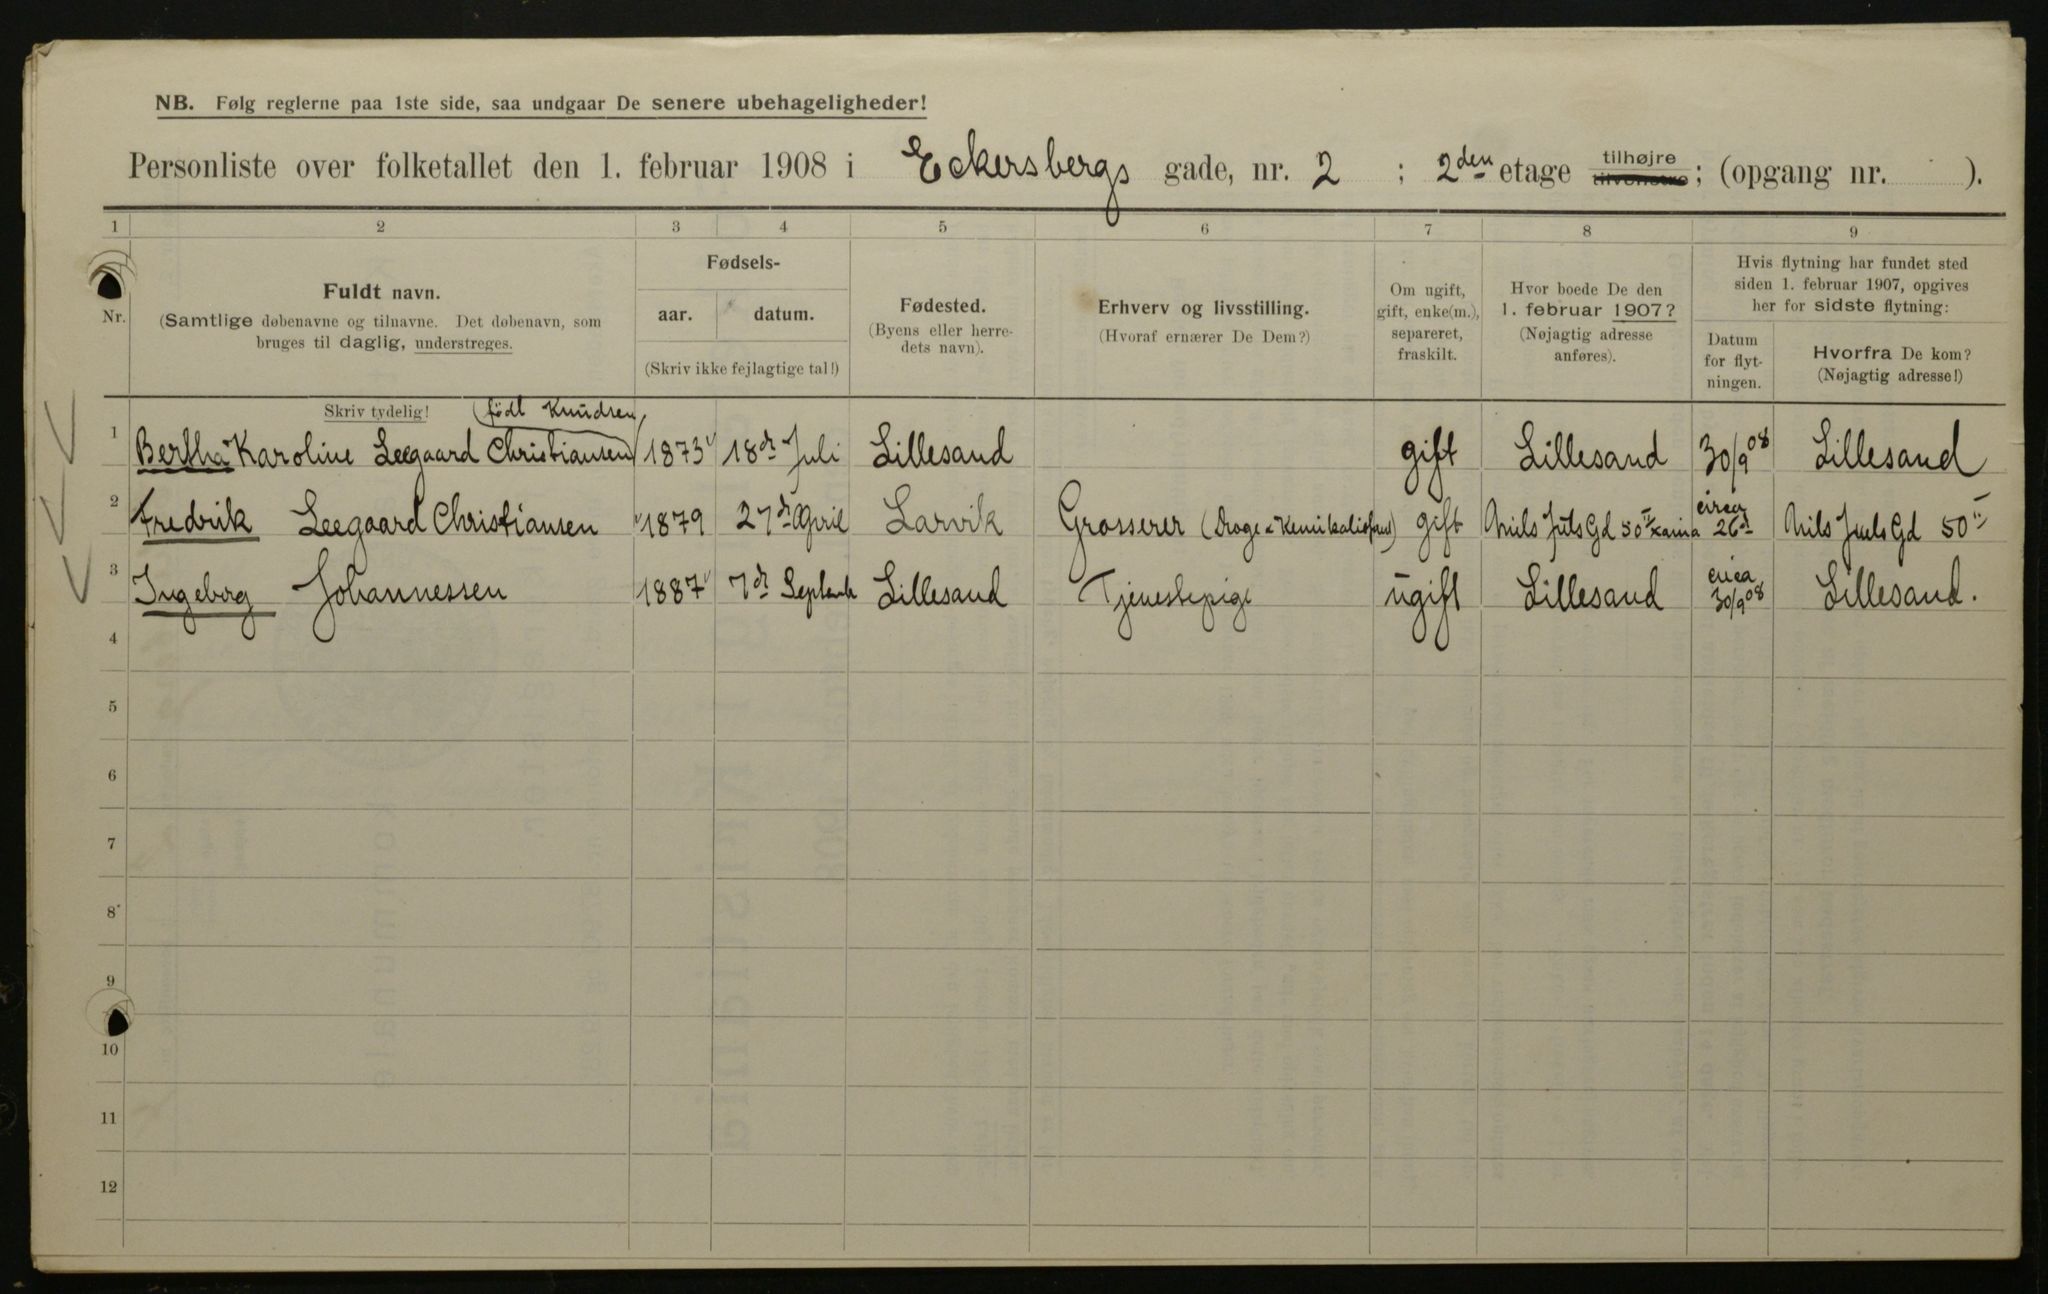 NB. Følg reglerne paa 1ste side, saa undgaar De senere ubehageligheder!
Personliste over folketallet den 1. februar 1908 i Eckersbergs gade, nr. 2 ; 2den etage tilhøjre tilvenstre; (opgang nr. ).
1 2 3 4 5 6 7 8 9
Nr.
Fuldt navn.
(Samtlige døbenavne og tilnavne. Det døbenavn, som
bruges til daglig, understreges.
Skriv tydelig!
Fødsels-
aar. datum.
(Skriv ikke fejlagtige tal!)
Fødested.
(Byens eller herre-
dets navn).
Erhverv og livsstilling.
(Hvoraf ernærer De Dem?)
Om ugift,
gift, enke(m.),
separeret,
fraskilt.
Hvor boede De den
1. februar 1907?
(Nøjagtig adresse
anføres).
Hvis flytning har fundet sted
siden 1. februar 1907, opgives
her for sidste flytning:
Datum
for flyt-
ningen.
Hvorfra De kom?
(Nøjagtig adresse!)
født Knudsen
1 Bertha Karoline Leegaard Christiansen 1873 18de Juli Lillesand gift Lillesand 30/9 08 Lillesand
2 Fredrik Leegaard Christiansen 1879 27de April Larvik Grosserer (Droge & gift Nils Juls Gd 50 II circa 26de Nils Juels Gd 50 II
3 Ingeborg Johannessen 1887 7de Septemb Lillesand Tjenestepige ugift Lillesand circa 30/9 08 Lillesand.
4
5
6
7
8
9
10
11
12